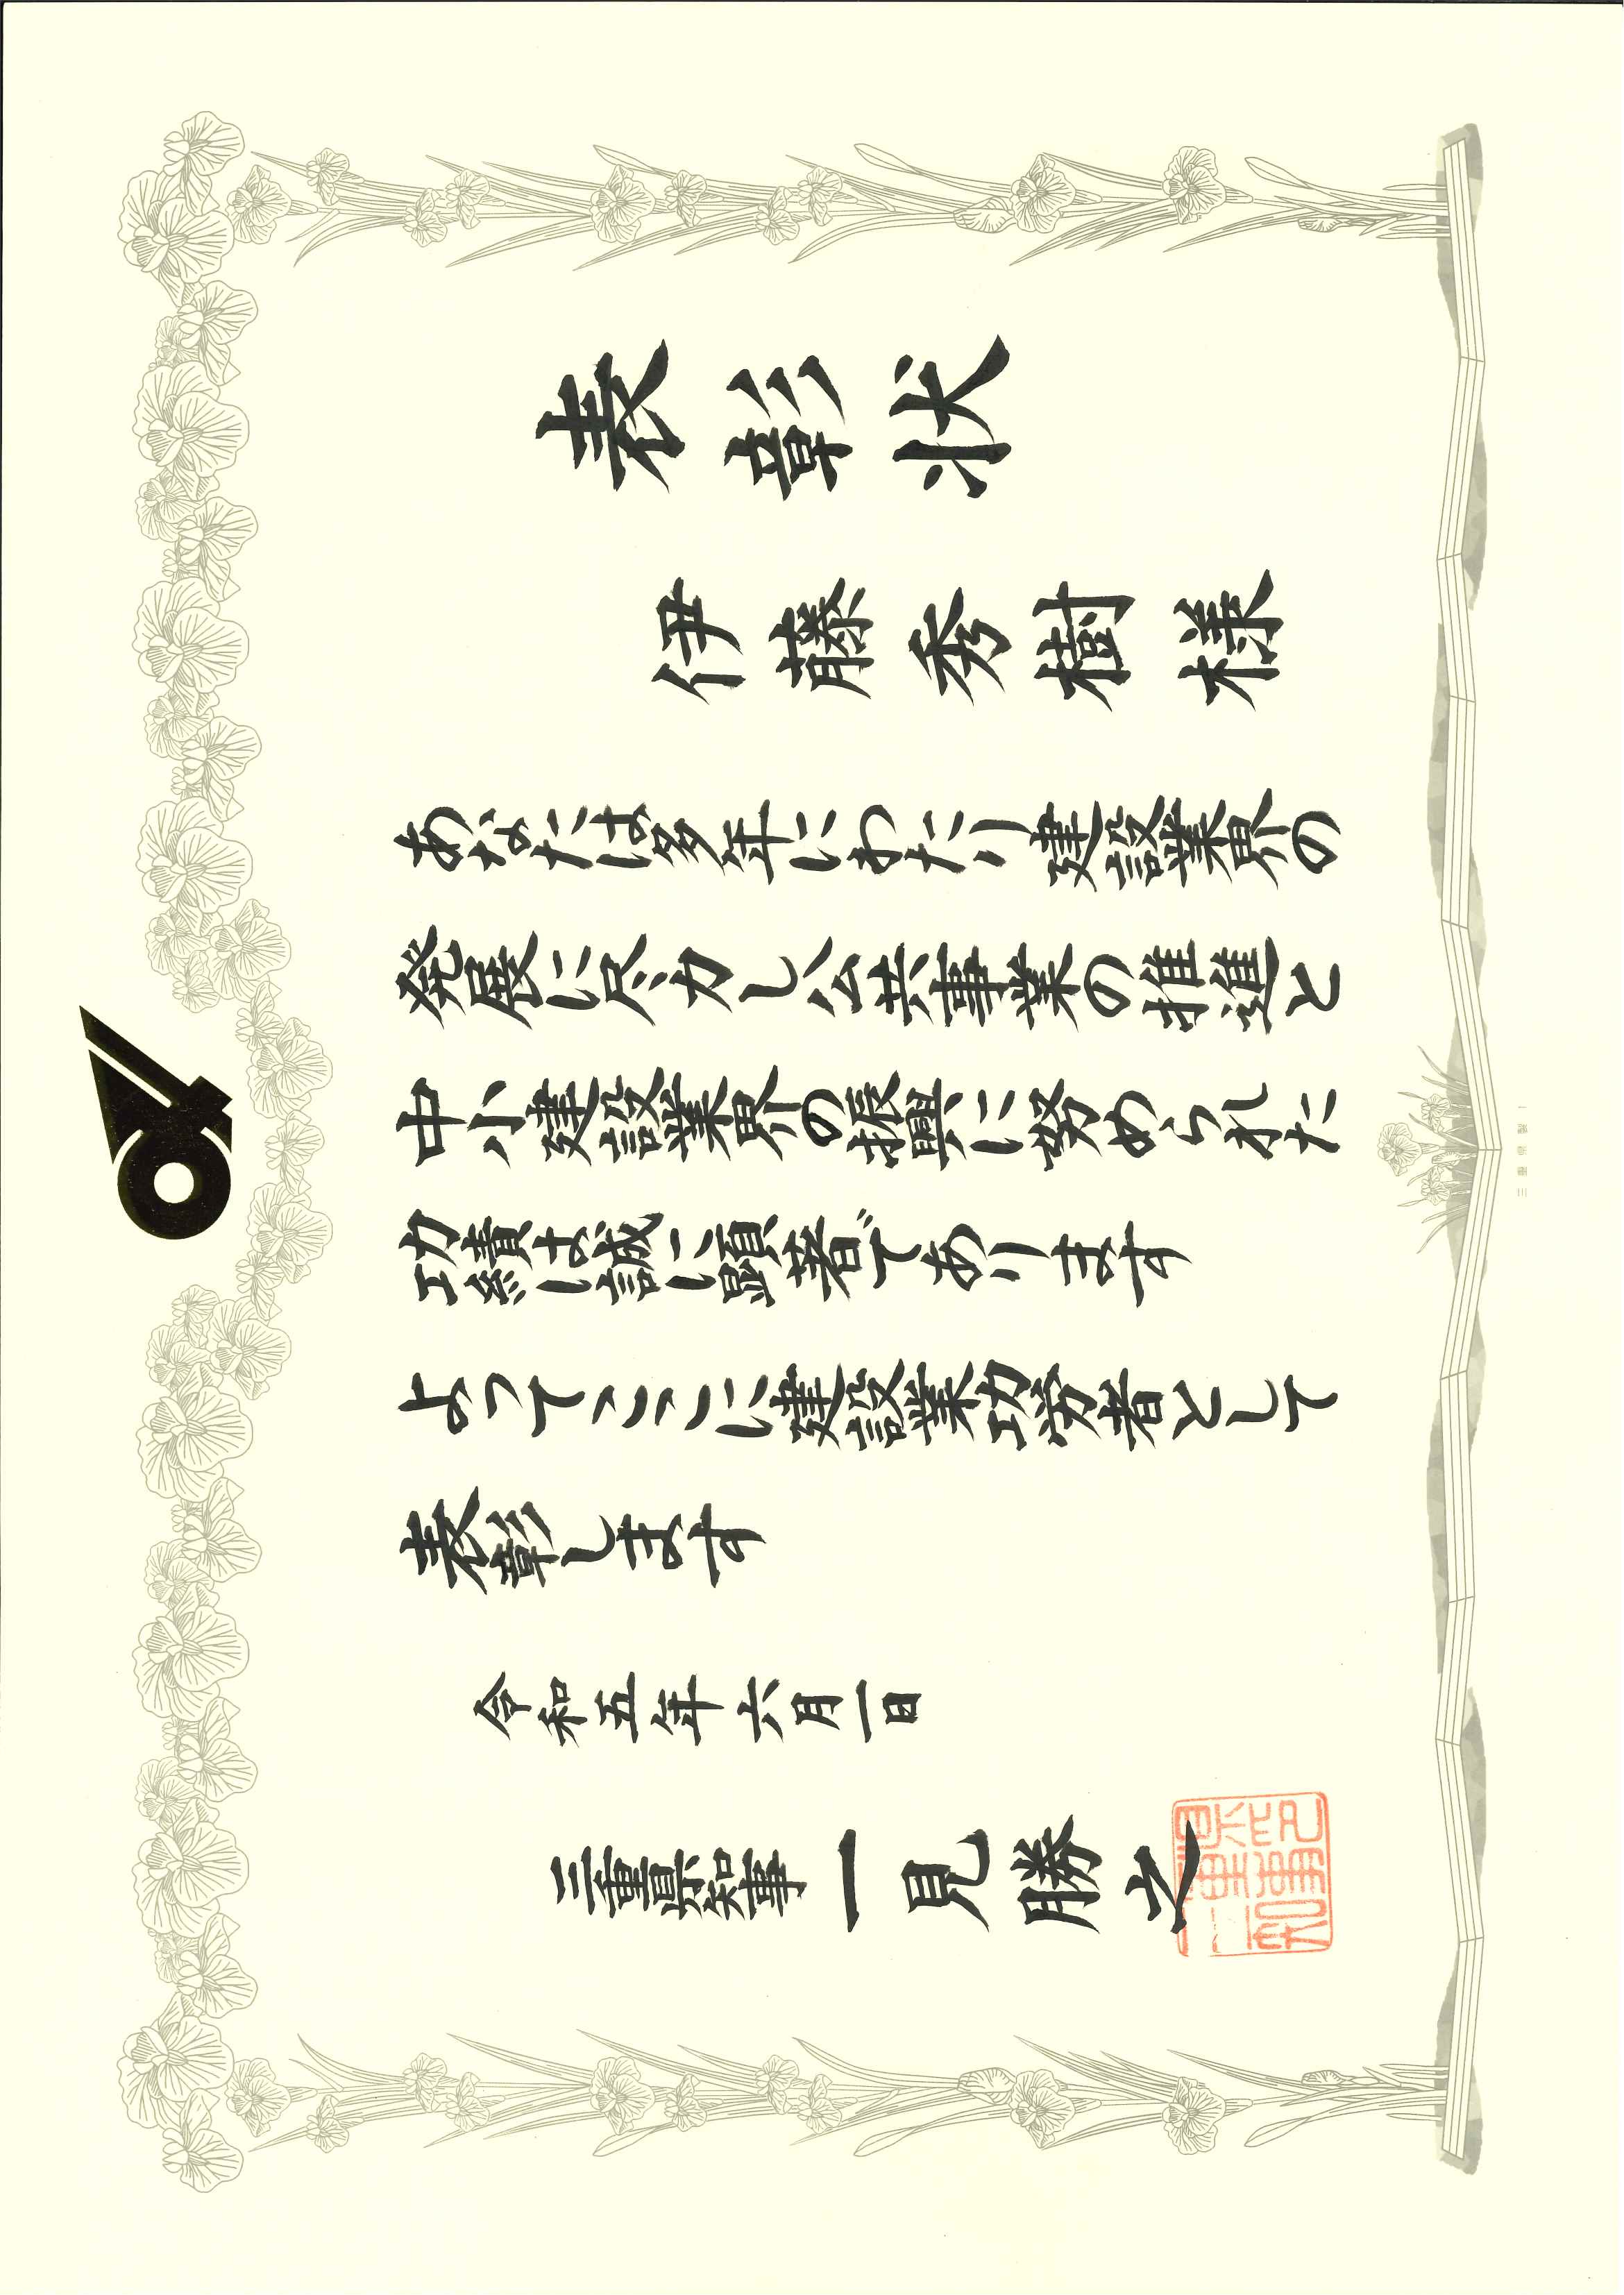 表彰状
伊藤秀樹様
あなたは多年にわたり建設業界の
発展に尽力し公共事業の推進と
中小建設業界の振興に努められた
功績は誠に顕著であります
よってここに建設業功労者として
表彰します
令和五年六月一日
三重県知事 一見勝之